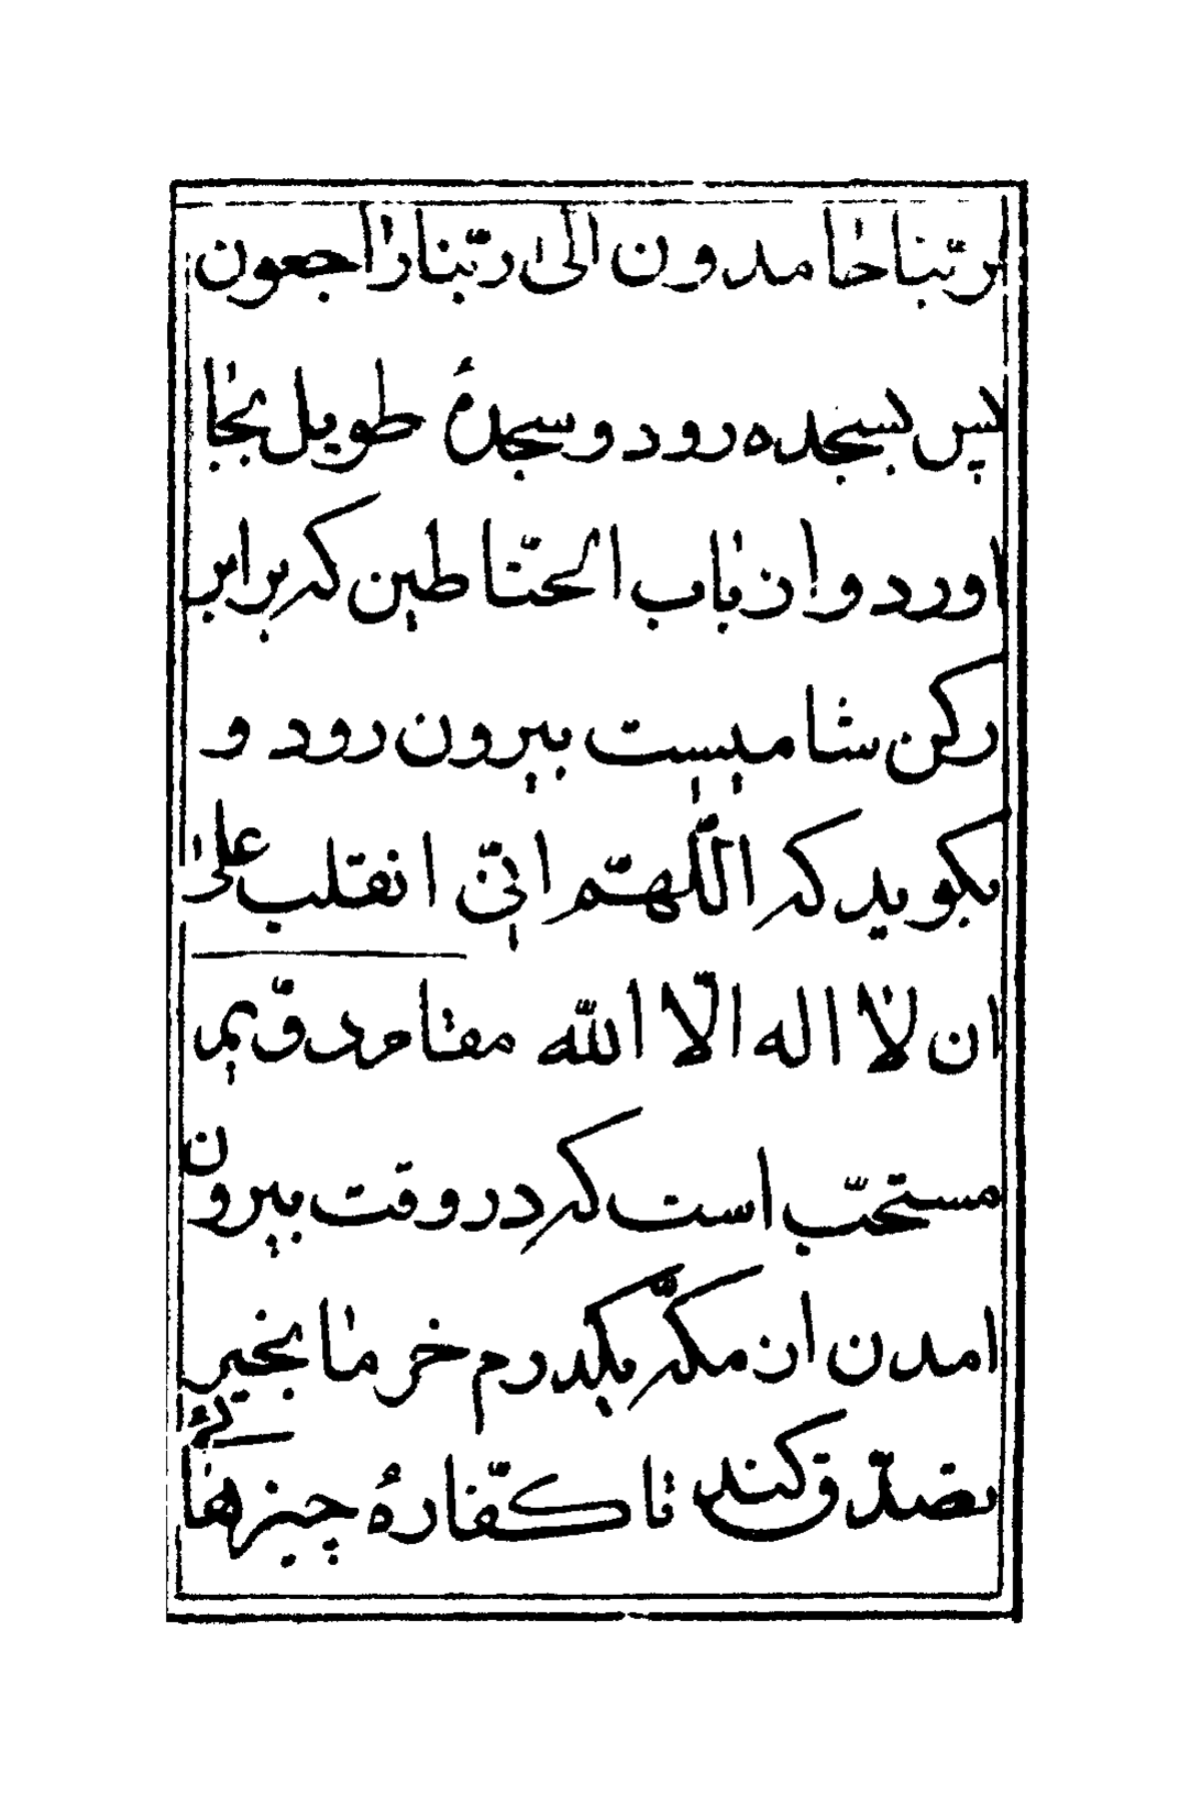 لربّنا حامدون الی ربّنا راجعون
پس بسجده رود و سجدهٔ طویل بجا
اورد و از باب الحنّاطین که برابر
رکن شامیست بیرون رود و
بکوید که اللّهمّ انّی انقلب علی
ان لا اله الّا الله مقام دوّیم
مستحبّ است که در وقت بیرون
امدن از مکّه یکدرم خرما بخیر
تصدّق کند تا کفّارهٔ چیزها